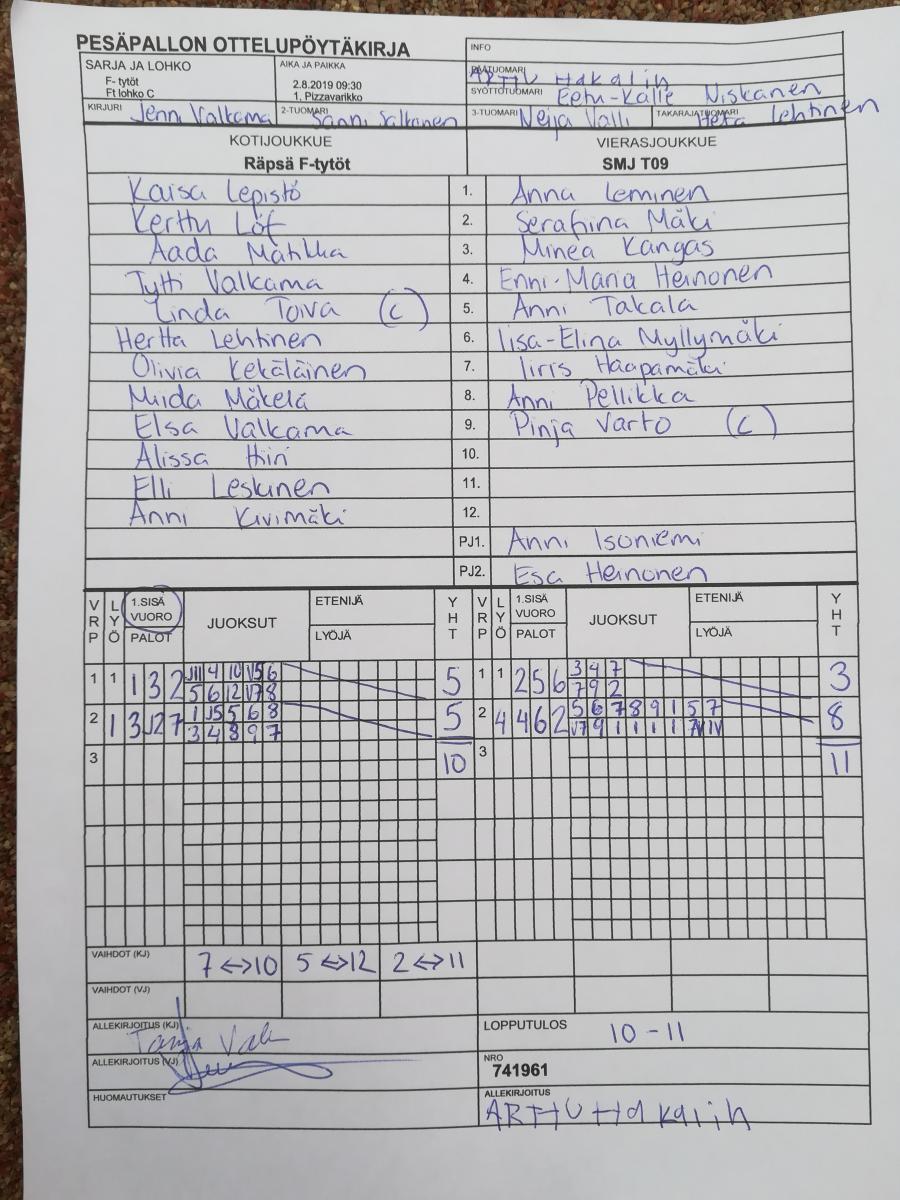 PESÄPALLON OTTELUPÖYTÄKIRJA
INFO
SARJA JA LOHKO
F- tytöt
Ft lohko C
AIKA JA PAIKKA
2.8.2019 09:30
1, Pizzavarikko
PÄÄTUOMARI ARTTU Hakalin
SYÖTTÖTUOMARI Eetu-Kalle Niskanen
KIRJURI Jenni Valkama 2-TUOMARI Sanni Salkanen 3-TUOMARI Neija Valli TAKARAJATUOMARI Heta Lehtinen
KOTIJOUKKUE VIERASJOUKKUE
Räpsä F-tytöt SMJ T09
Kaisa Lepistö 1. Anna Leminen
Kerttu Löf 2. Serafiina Mäki
Aada Mätikkä 3. Minea Kangas
Tytti Valkama 4. Enni-Maria Heinonen
Linda Toiva (C) 5. Anni Takala
Hertta Lehtinen 6. Iisa-Elina Myllymäki
Olivia Kekäläinen 7. Iiris Haapamäki
Miida Mäkelä 8. Anni Pellikka
Elsa Valkama 9. Pinja Varto (C)
Alissa Hiiri 10.
Elli Leskinen 11.
Anni Kivimäki 12.
PJ1. Anni Isoniemi
PJ2. Esa Heinonen
VRP LYÖ 1.SISÄ VUORO PALOT JUOKSUT ETENIJÄ LYÖJÄ YHT VRP LYÖ 1.SISÄ VUORO PALOT JUOKSUT ETENIJÄ LYÖJÄ YHT
1 1 1 3 2 4 10 6 5 1 1 2 5 6 3 4 7 3
5 6 12 8 7 9 2
2 1 3 2 7 1 5 6 8 5 2 4 4 6 2 5 6 7 8 9 1 5 7 8
3 4 8 9 7 9 1 1 1 1
3 10 3 11
VAIHDOT (KJ) 7 <-> 10 5 <-> 12 2 <-> 11
VAIHDOT (VJ)
ALLEKIRJOITUS (KJ) LOPPUTULOS 10 - 11
ALLEKIRJOITUS (VJ) NRO
741961
HUOMAUTUKSET ALLEKIRJOITUS
ARTTU Hakalin